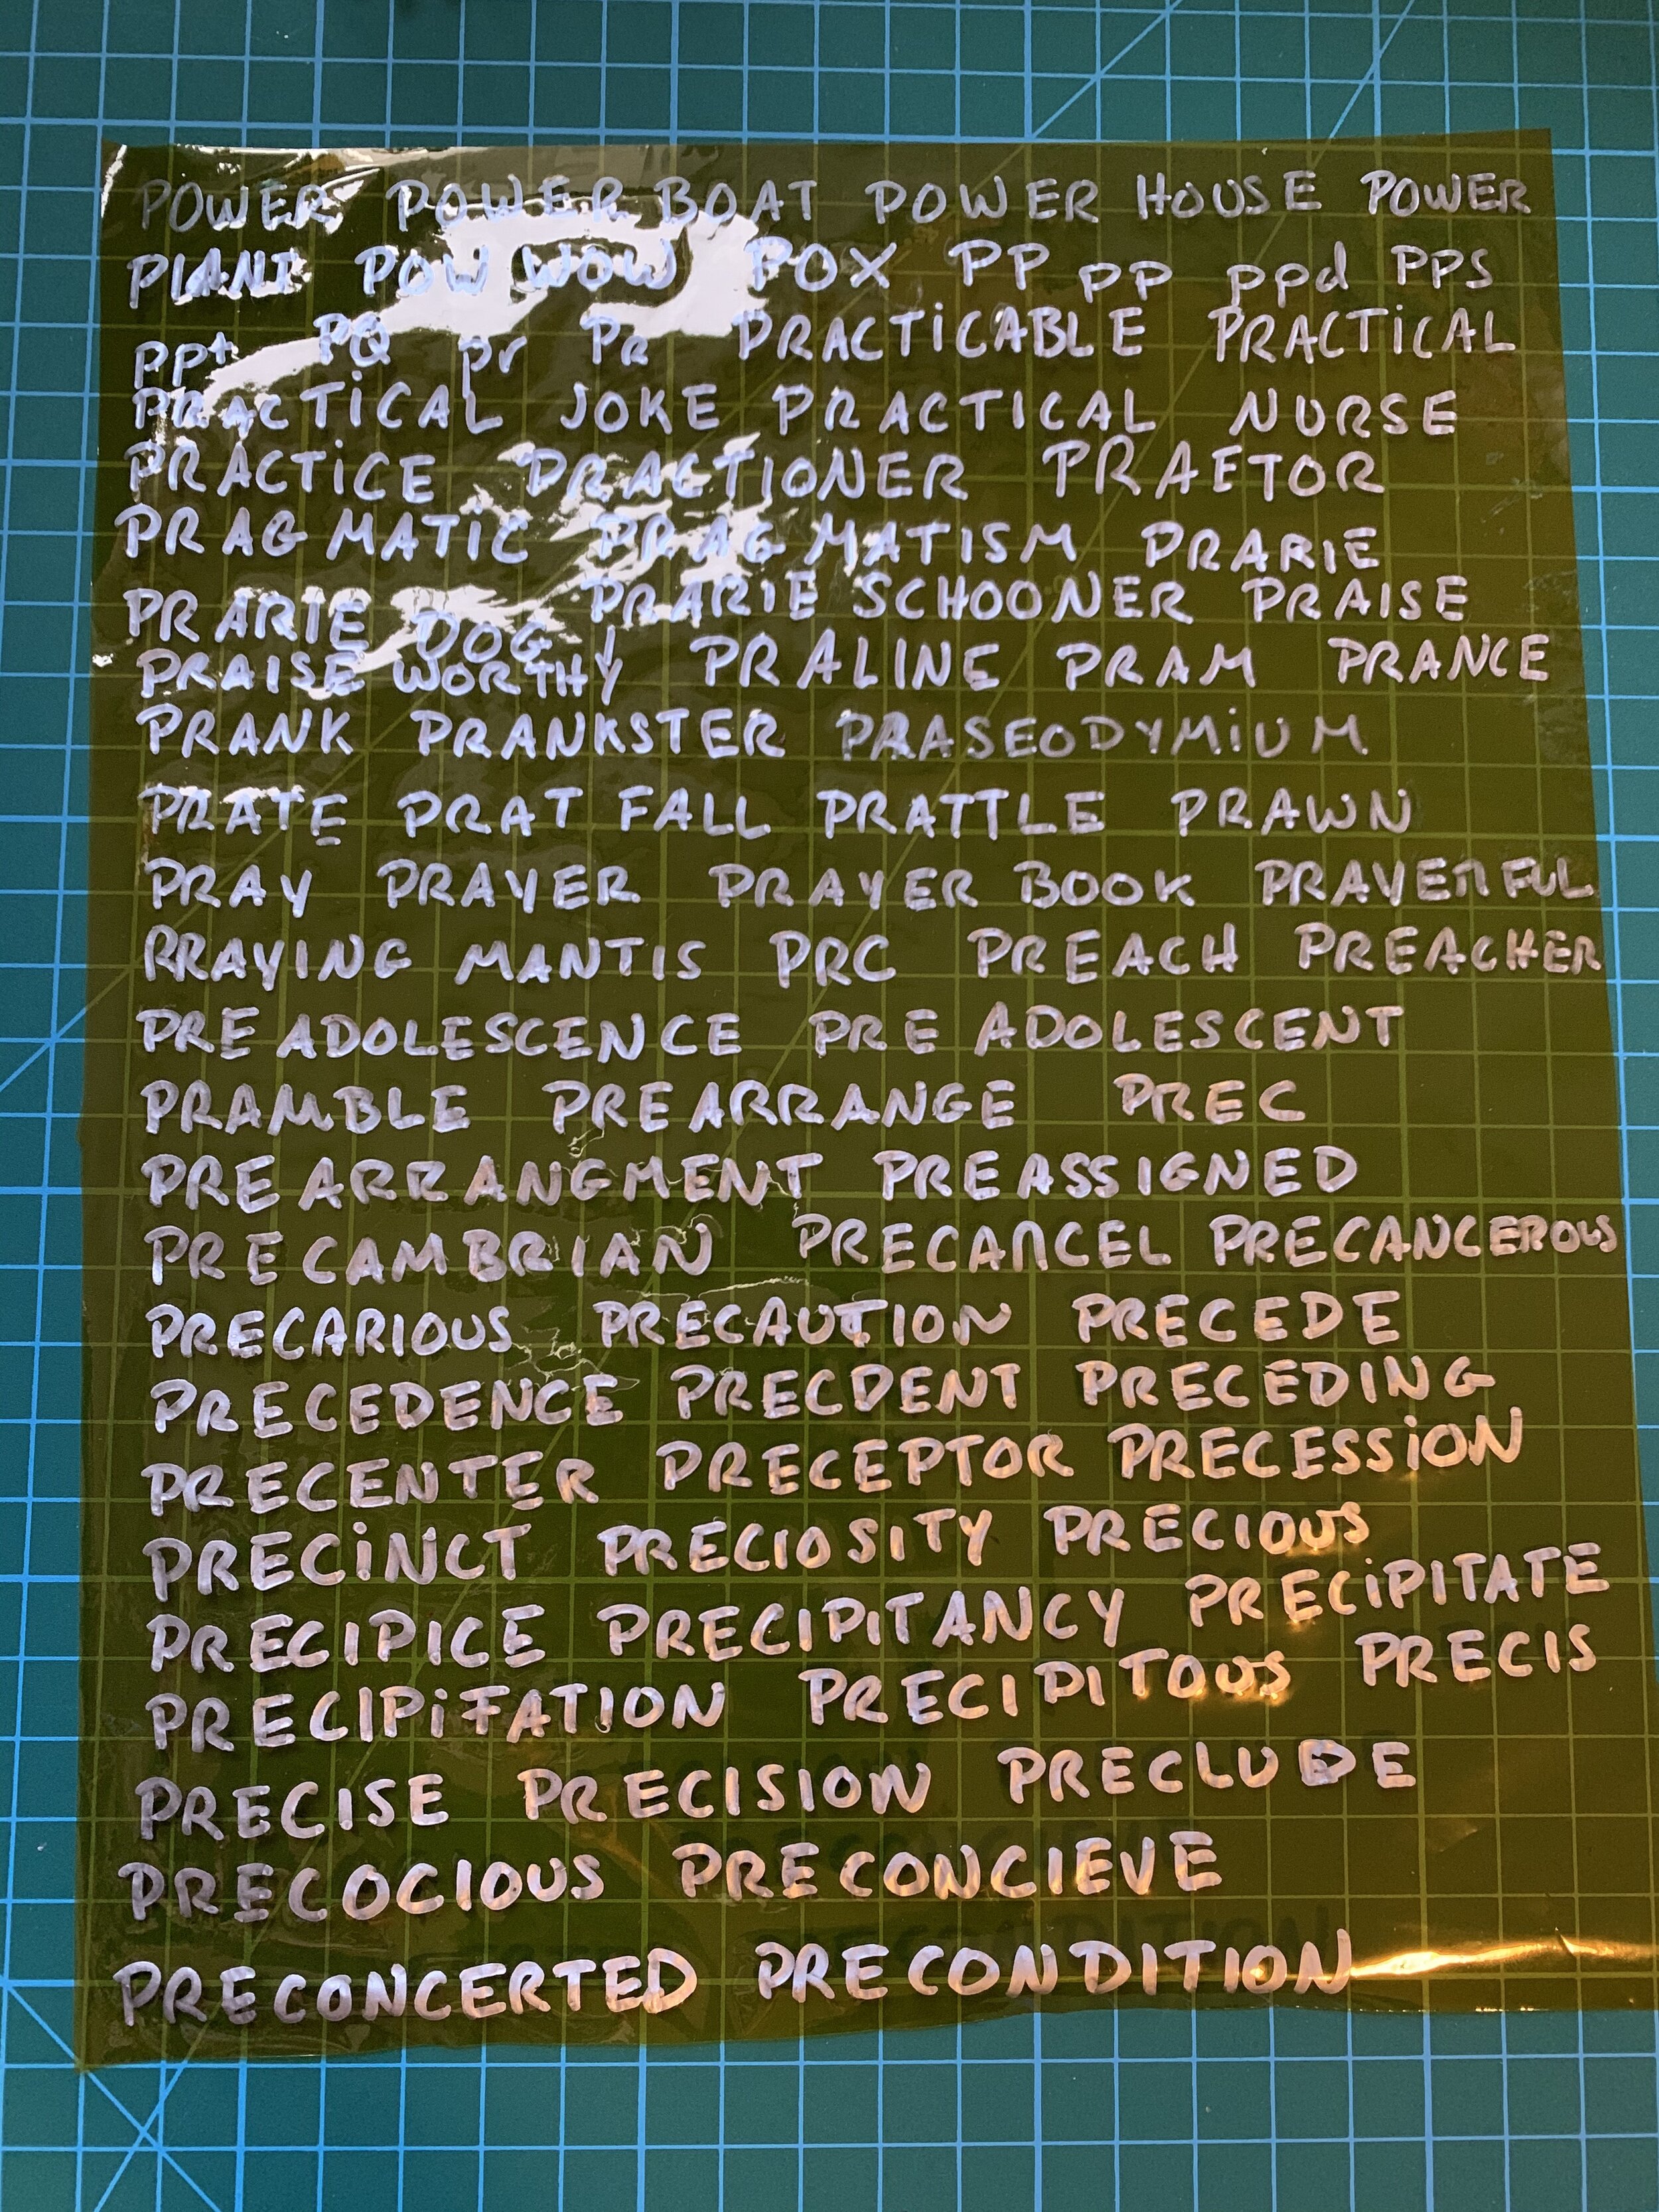 POWER POWER BOAT POWER HOUSE POWER
PLANT POW WOW POX PP PP ppd PPS
ppt PQ pr Pr PRACTiCABLE PRACTiCAL
PRACTiCAL JOKE PRACTICAL NURSE
PRACTiCE PRACTIONER PRAETOR
PRAGMATiC PRAGMATISM PRARIE
PRARIE DOG PRARIE SCHOONER PRAISE
PRAISE WORTHY PRALINE PRAM PRANCE
PRANK PRANKSTER PRASEODYMiUM
PRATE PRAT FALL PRATTLE PRAWN
PRAY PRAYER PRAYER BOOK PRAYERFUL
PRAYING MANTIS PRC PREACH PREACHER
PRE ADOLESCENCE PRE ADOLESCENT
PRAMBLE PREARRANGE PREC
PREARRANGMENT PREASSIGNED
PRECAMBRIAN PRECANCEL PRECANCEROUS
PRECARIOUS PRECAUTION PRECEDE
PRECEDENCE PRECDENT PRECEDING
PRECENTER PRECEPTOR PRECESSiON
PRECiNCT PRECIOSITY PRECIOUS
PRECIPICE PRECIPITANCY PRECiPITATE
PRECIPiTATION PRECIPITOUS PRECIS
PRECISE PRECISION PRECLUDE
PRECOCIOUS PRECONCIEVE
PRECONCERTED PRECONDITION